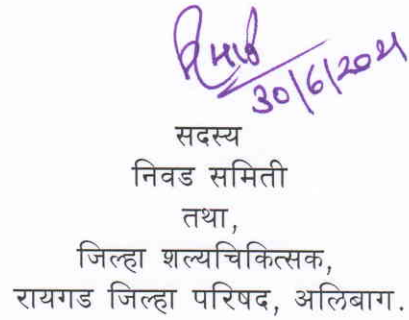 30/6/2021
सदस्य
निवड समिती
तथा,
जिल्हा शल्यचिकित्सक,
रायगड जिल्हा परिषद, अलिबाग.